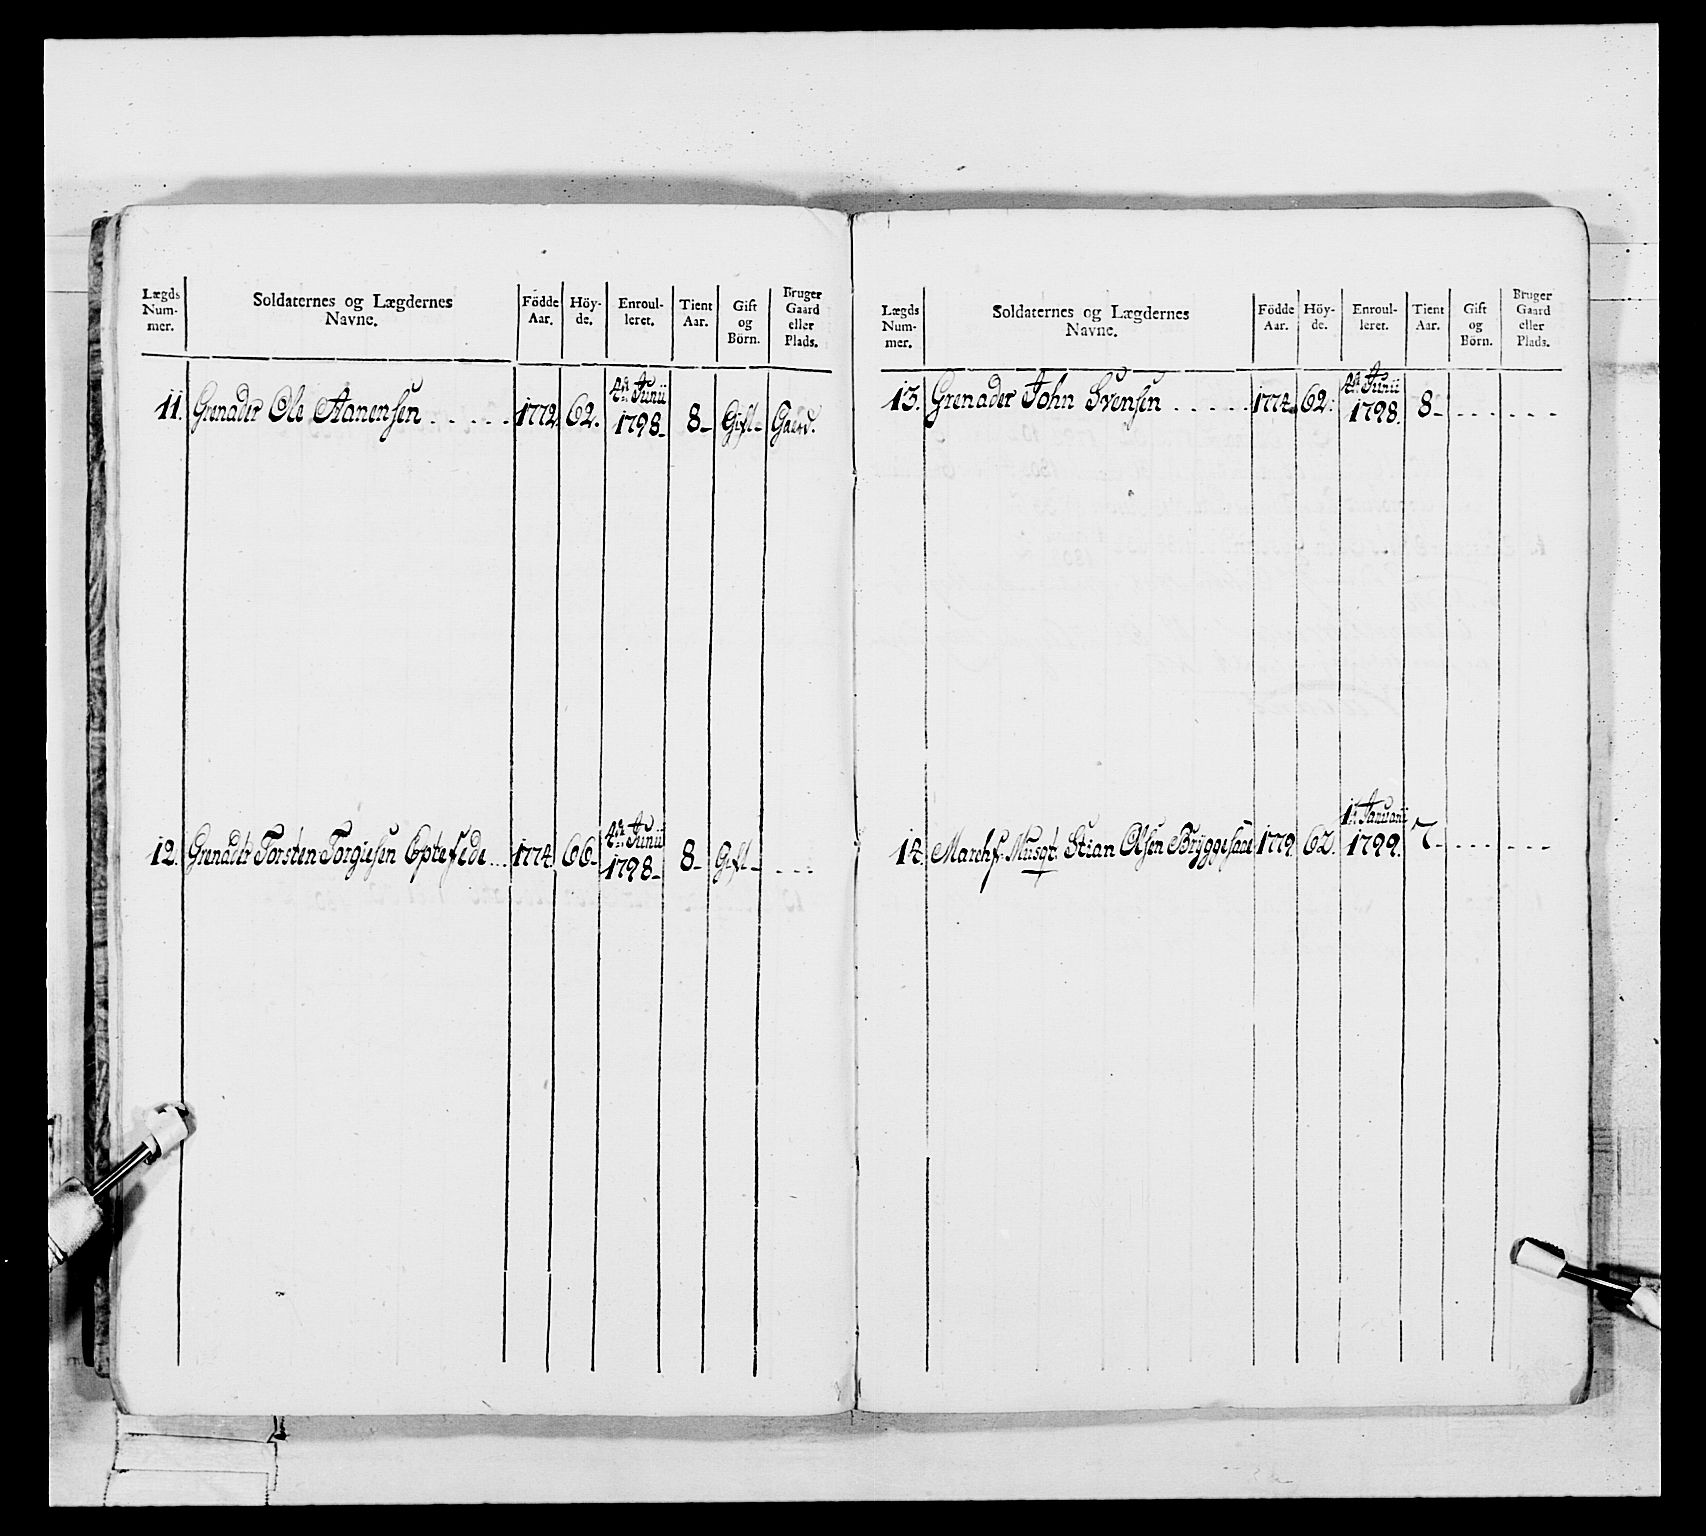 Lægds Num- mer.
Soldaternes og Lægdernes Navne.
Födde Aar.
Höy- de.
Enroul- leret.
Tient Aar.
Gift og Börn.
Bruger Gaard eller Plads.
11. Grenader Ole Aanensen . . . . . 1772. 62. 4de Junii 1798. 8 Gift Gaard.
12. Grenader Torsten Torgiesen Optefede . . . 1774. 66 4de Junii 1798 8 Gift . . .
Lægds Num- mer.
Soldaternes og Lægdernes Navne.
Födde Aar.
Höy- de.
Enroul- leret.
Tient Aar.
Gift og Börn.
Bruger Gaard eller Plads.
13. Grenader John Svensen . . . . . 1774 62. 4de Junii 1798. 8 . . . . . .
14. Marchf. Musqt. Stian Olsen Bryggesaae 1779. 62. 1te Januarii 1799. 7 . . . . . .